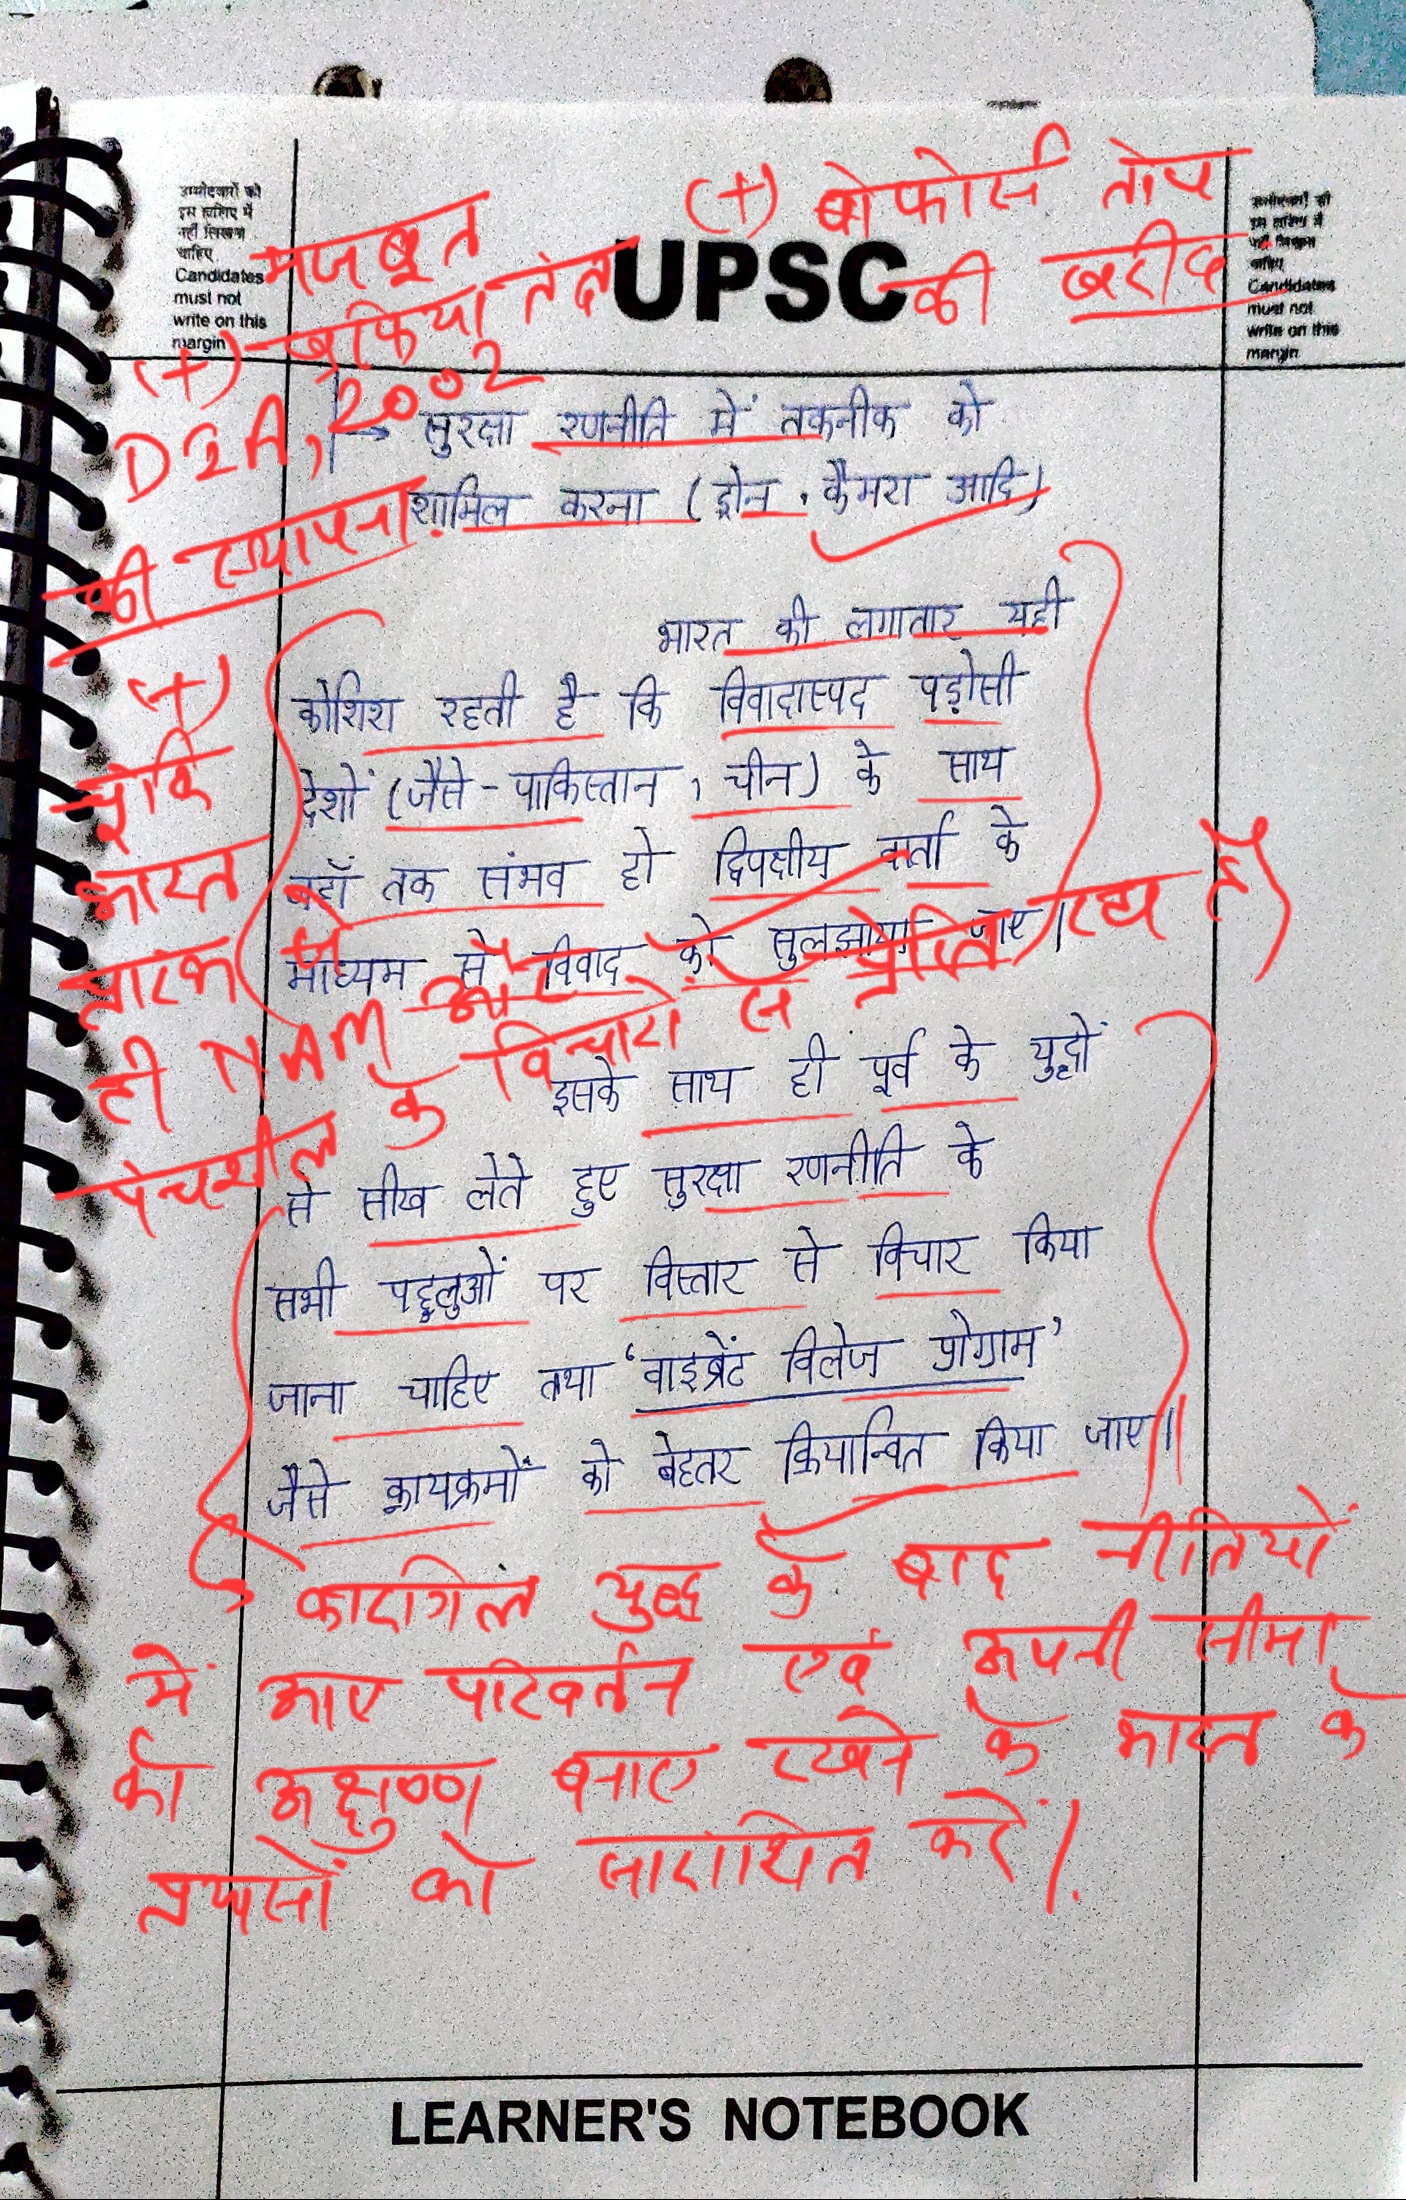 उम्मीदवारों को
इस हाशिए में
नहीं लिखना
चाहिए
Candidates
must not
write on this
margin
UPSC
उम्मीदवारों को
इस हाशिए में
नहीं लिखना
चाहिए
Candidates
must not
write on this
margin
(+) बोफोर्स तोप
की खरीद
मजबूत
(+) खुफिया तंत्र
DIA, 2002
की स्थापना
→ सुरक्षा रणनीति में तकनीक को
शामिल करना (ड्रोन, कैमरा आदि)
भारत की लगातार यही
कोशिश रहती है कि विवादास्पद पड़ोसी
देशों (जैसे - पाकिस्तान, चीन) के साथ
जहाँ तक संभव हो द्विपक्षीय वार्ता के
माध्यम से विवाद को सुलझाया जाए।
(+)
चूंकि
भारत
ही NAM और
पंचशील के विचारों से प्रेरित रहा है)
इसके साथ ही पूर्व के युद्धों
से सीख लेते हुए सुरक्षा रणनीति के
सभी पहलुओं पर विस्तार से विचार किया
जाना चाहिए तथा 'वाइब्रेंट विलेज प्रोग्राम'
जैसे कायक्रमों को बेहतर क्रियान्वित किया जाए॥
कारगिल युद्ध के बाद नीतियों
में आए परिवर्तन एवं अपनी सीमा
को अक्षुण्ण बनाए रखने के भारत के
प्रयासों को सारांशित करें।
LEARNER'S NOTEBOOK